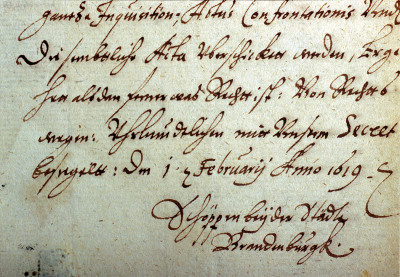 gantze Inquisition-Actus Confrontationis Vnd
Die semptliche Acta Vberschicket werden, Erge
het alsdan ferner was Recht ist: Von Rechts
wegen: Vhrkundtlichen mit Vnserm Secret
besiegelt: Den 1 Februarij Anno 1619
Schöppen bey der Stadt
Brandenburgk.